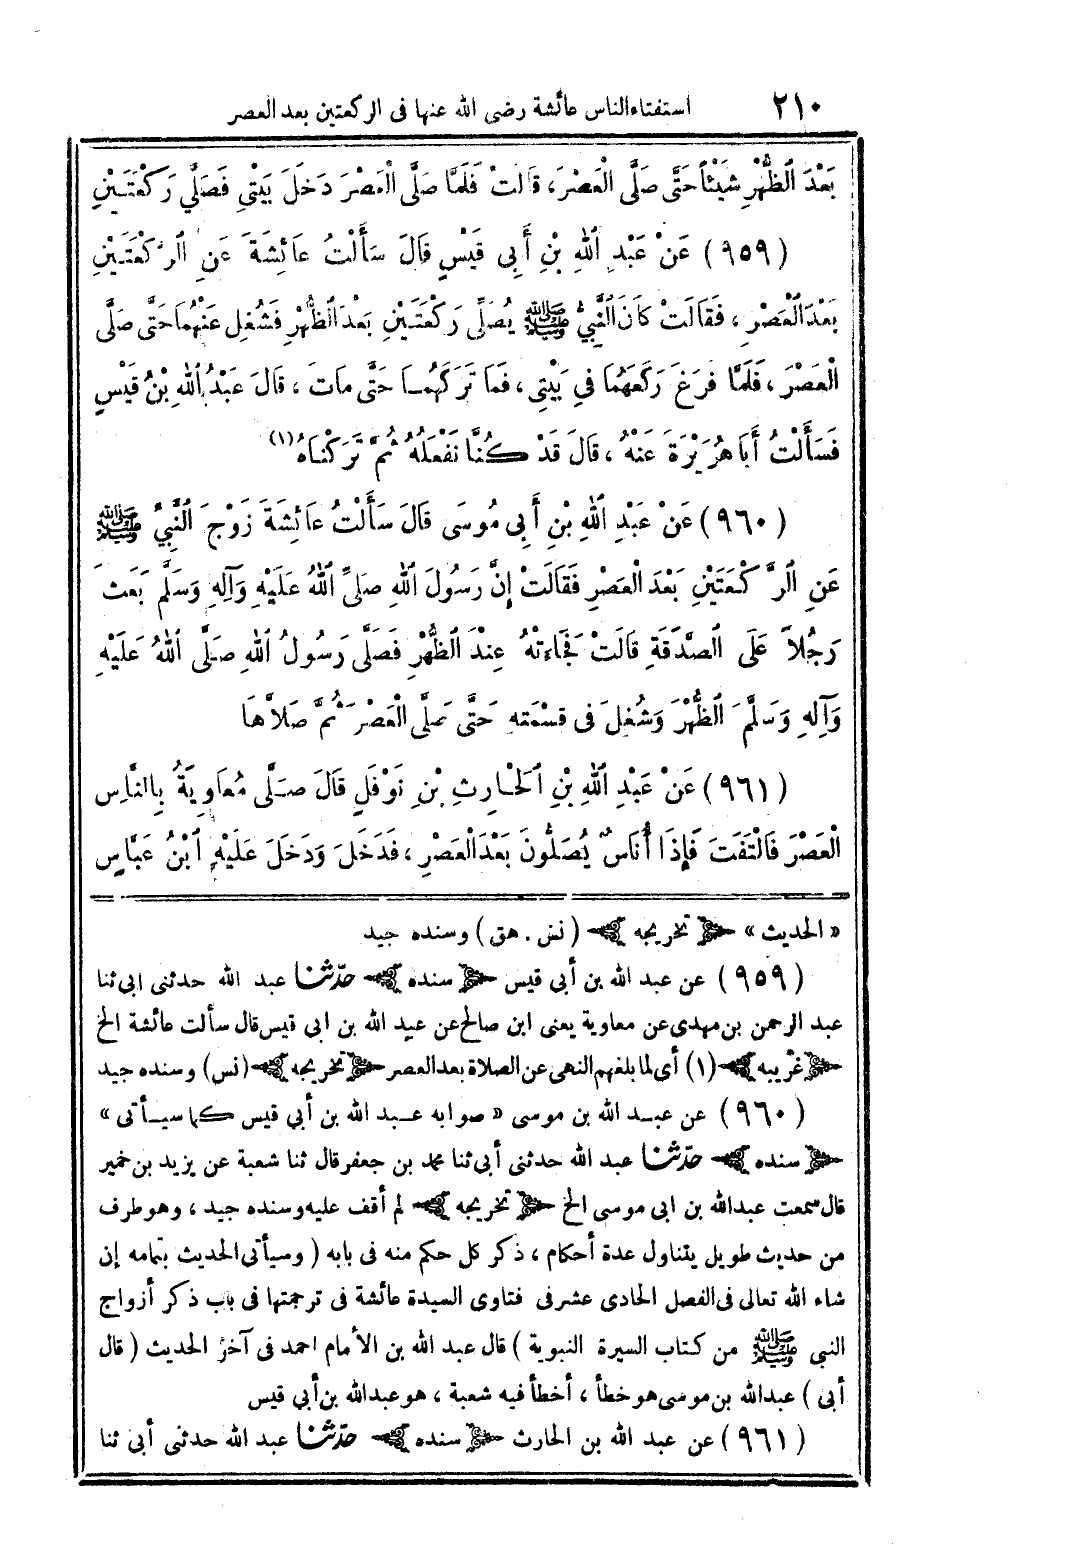 ٢١٠ استفتاء الناس عائشة رضى الله عنها فى الركعتين بعد العصر
بَعْدَ الظُّهْرِ شَيْئًا حَتَّى صَلَّى الْعَصْرَ، قَالَتْ فَلَمَّا صَلَّى الْعَصْرَ دَخَلَ بَيْتِي فَصَلَّي رَكْعَتَيْنِ
(٩٥٩) عَنْ عَبْدِ اللهِ بْنِ أَبِي قَيْسٍ قَالَ سَأَلْتُ عَائِشَةَ عَنِ الرَّكْعَتَيْنِ
بَعْدَ الْعَصْرِ، فَقَالَتْ كَانَ النَّبِيُّ ﷺ يُصَلِّي رَكْعَتَيْنِ بَعْدَ الظُّهْرِ فَشُغِلَ عَنْهُمَا حَتَّى صَلَّى
الْعَصْرَ، فَلَمَّا فَرَغَ رَكَعَهُمَا فِي بَيْتِي، فَمَا تَرَكَهُمَا حَتَّى مَاتَ، قَالَ عَبْدُ اللهِ بْنُ قَيْسٍ
فَسَأَلْتُ أَبَا هُرَيْرَةَ عَنْهُ، قَالَ قَدْ كُنَّا نَفْعَلُهُ ثُمَّ تَرَكْنَاهُ (١)
(٩٦٠) عَنْ عَبْدِ اللهِ بْنِ أَبِي مُوسَى قَالَ سَأَلْتُ عَائِشَةَ زَوْجَ النَّبِيِّ ﷺ
عَنِ الرَّكْعَتَيْنِ بَعْدَ الْعَصْرِ فَقَالَتْ إِنَّ رَسُولَ اللهِ صَلَّى اللهُ عَلَيْهِ وَآلِهِ وَسَلَّمَ بَعَثَ
رَجُلًا عَلَى الصَّدَقَةِ قَالَتْ فَجَاءَتْهُ عِنْدَ الظُّهْرِ فَصَلَّى رَسُولُ اللهِ صَلَّى اللهُ عَلَيْهِ
وَآلِهِ وَسَلَّمَ الظُّهْرَ وَشُغِلَ فِى قِسْمَتِهِ حَتَّى صَلَّى الْعَصْرَ ثُمَّ صَلَّاهَا
(٩٦١) عَنْ عَبْدِ اللهِ بْنِ الْحَارِثِ بْنِ نَوْفَلٍ قَالَ صَلَّى مُعَاوِيَةُ بِالنَّاسِ
الْعَصْرَ فَالْتَفَتَ فَإِذَا أُنَاسٌ يُصَلُّونَ بَعْدَ الْعَصْرِ، فَدَخَلَ وَدَخَلَ عَلَيْهِ ابْنُ عَبَّاسٍ
« الحديث » ﴿ تخريجه ﴾ (نس . هق) وسنده جيد
(٩٥٩) عن عبد الله بن أبي قيس ﴿ سنده ﴾ حدّثنا عبد الله حدثنى ابى ثنا
عبد الرحمن بن مهدى عن معاوية يعنى ابن صالح عن عبد الله بن ابى قيس قال سألت عائشة الخ
﴿ غريبه ﴾ (١) أى لما بلغهم النهى عن الصلاة بعد العصر ﴿ تخريجه ﴾ (نس) وسنده جيد
(٩٦٠) عن عبد الله بن موسى « صوابه عبد الله بن أبي قيس كما سيأتى »
﴿ سنده ﴾ حدّثنا عبد الله حدثنى أبى ثنا محمد بن جعفر قال ثنا شعبة عن يزيد بن خمير
قال سمعت عبد الله بن ابى موسى الخ ﴿ تخريجه ﴾ لم أقف عليه وسنده جيد، وهو طرف
من حديث طويل يتناول عدة أحكام، ذكر كل حكم منه فى بابه (وسيأتى الحديث بتمامه إن
شاء الله تعالى فى الفصل الحادى عشر فى فتاوى السيدة عائشة فى ترجمتها فى باب ذكر أزواج
النبى ﷺ من كتاب السيرة النبوية) قال عبد الله بن الأمام احمد فى آخر الحديث (قال
أبى) عبد الله بن موسى هو خطأ، أخطأ فيه شعبة، هو عبد الله بن أبي قيس
(٩٦١) عن عبد الله بن الحارث ﴿ سنده ﴾ حدّثنا عبد الله حدثنى أبى ثنا